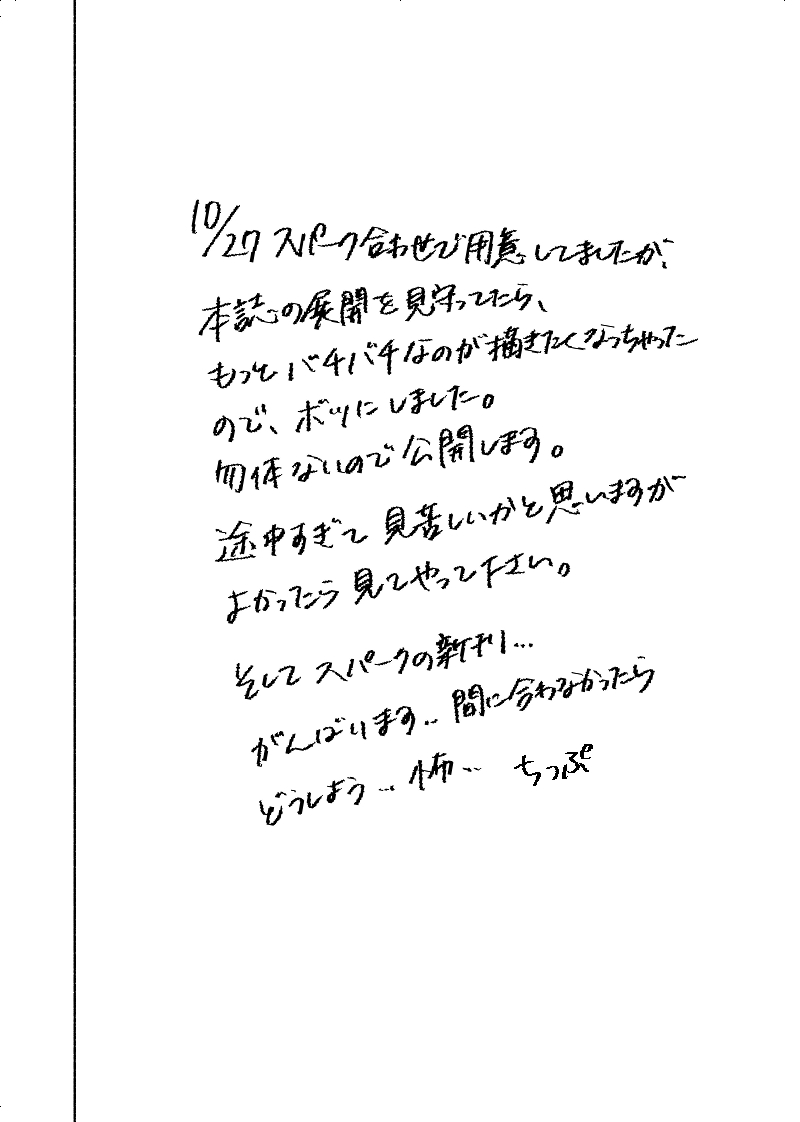 10/27 スパーク合わせで用意してましたが、
本誌の展開を見守ってたら、
もっとバチバチなのが描きたくなっちゃった
ので、ボツにしました。
勿体ないので公開します。
途中すぎて見苦しいかと思いますが
よかったら見てやって下さい。
そしてスパークの新刊…
がんばります‥間に合わなかったら
どうしよう…怖… ちっぷ